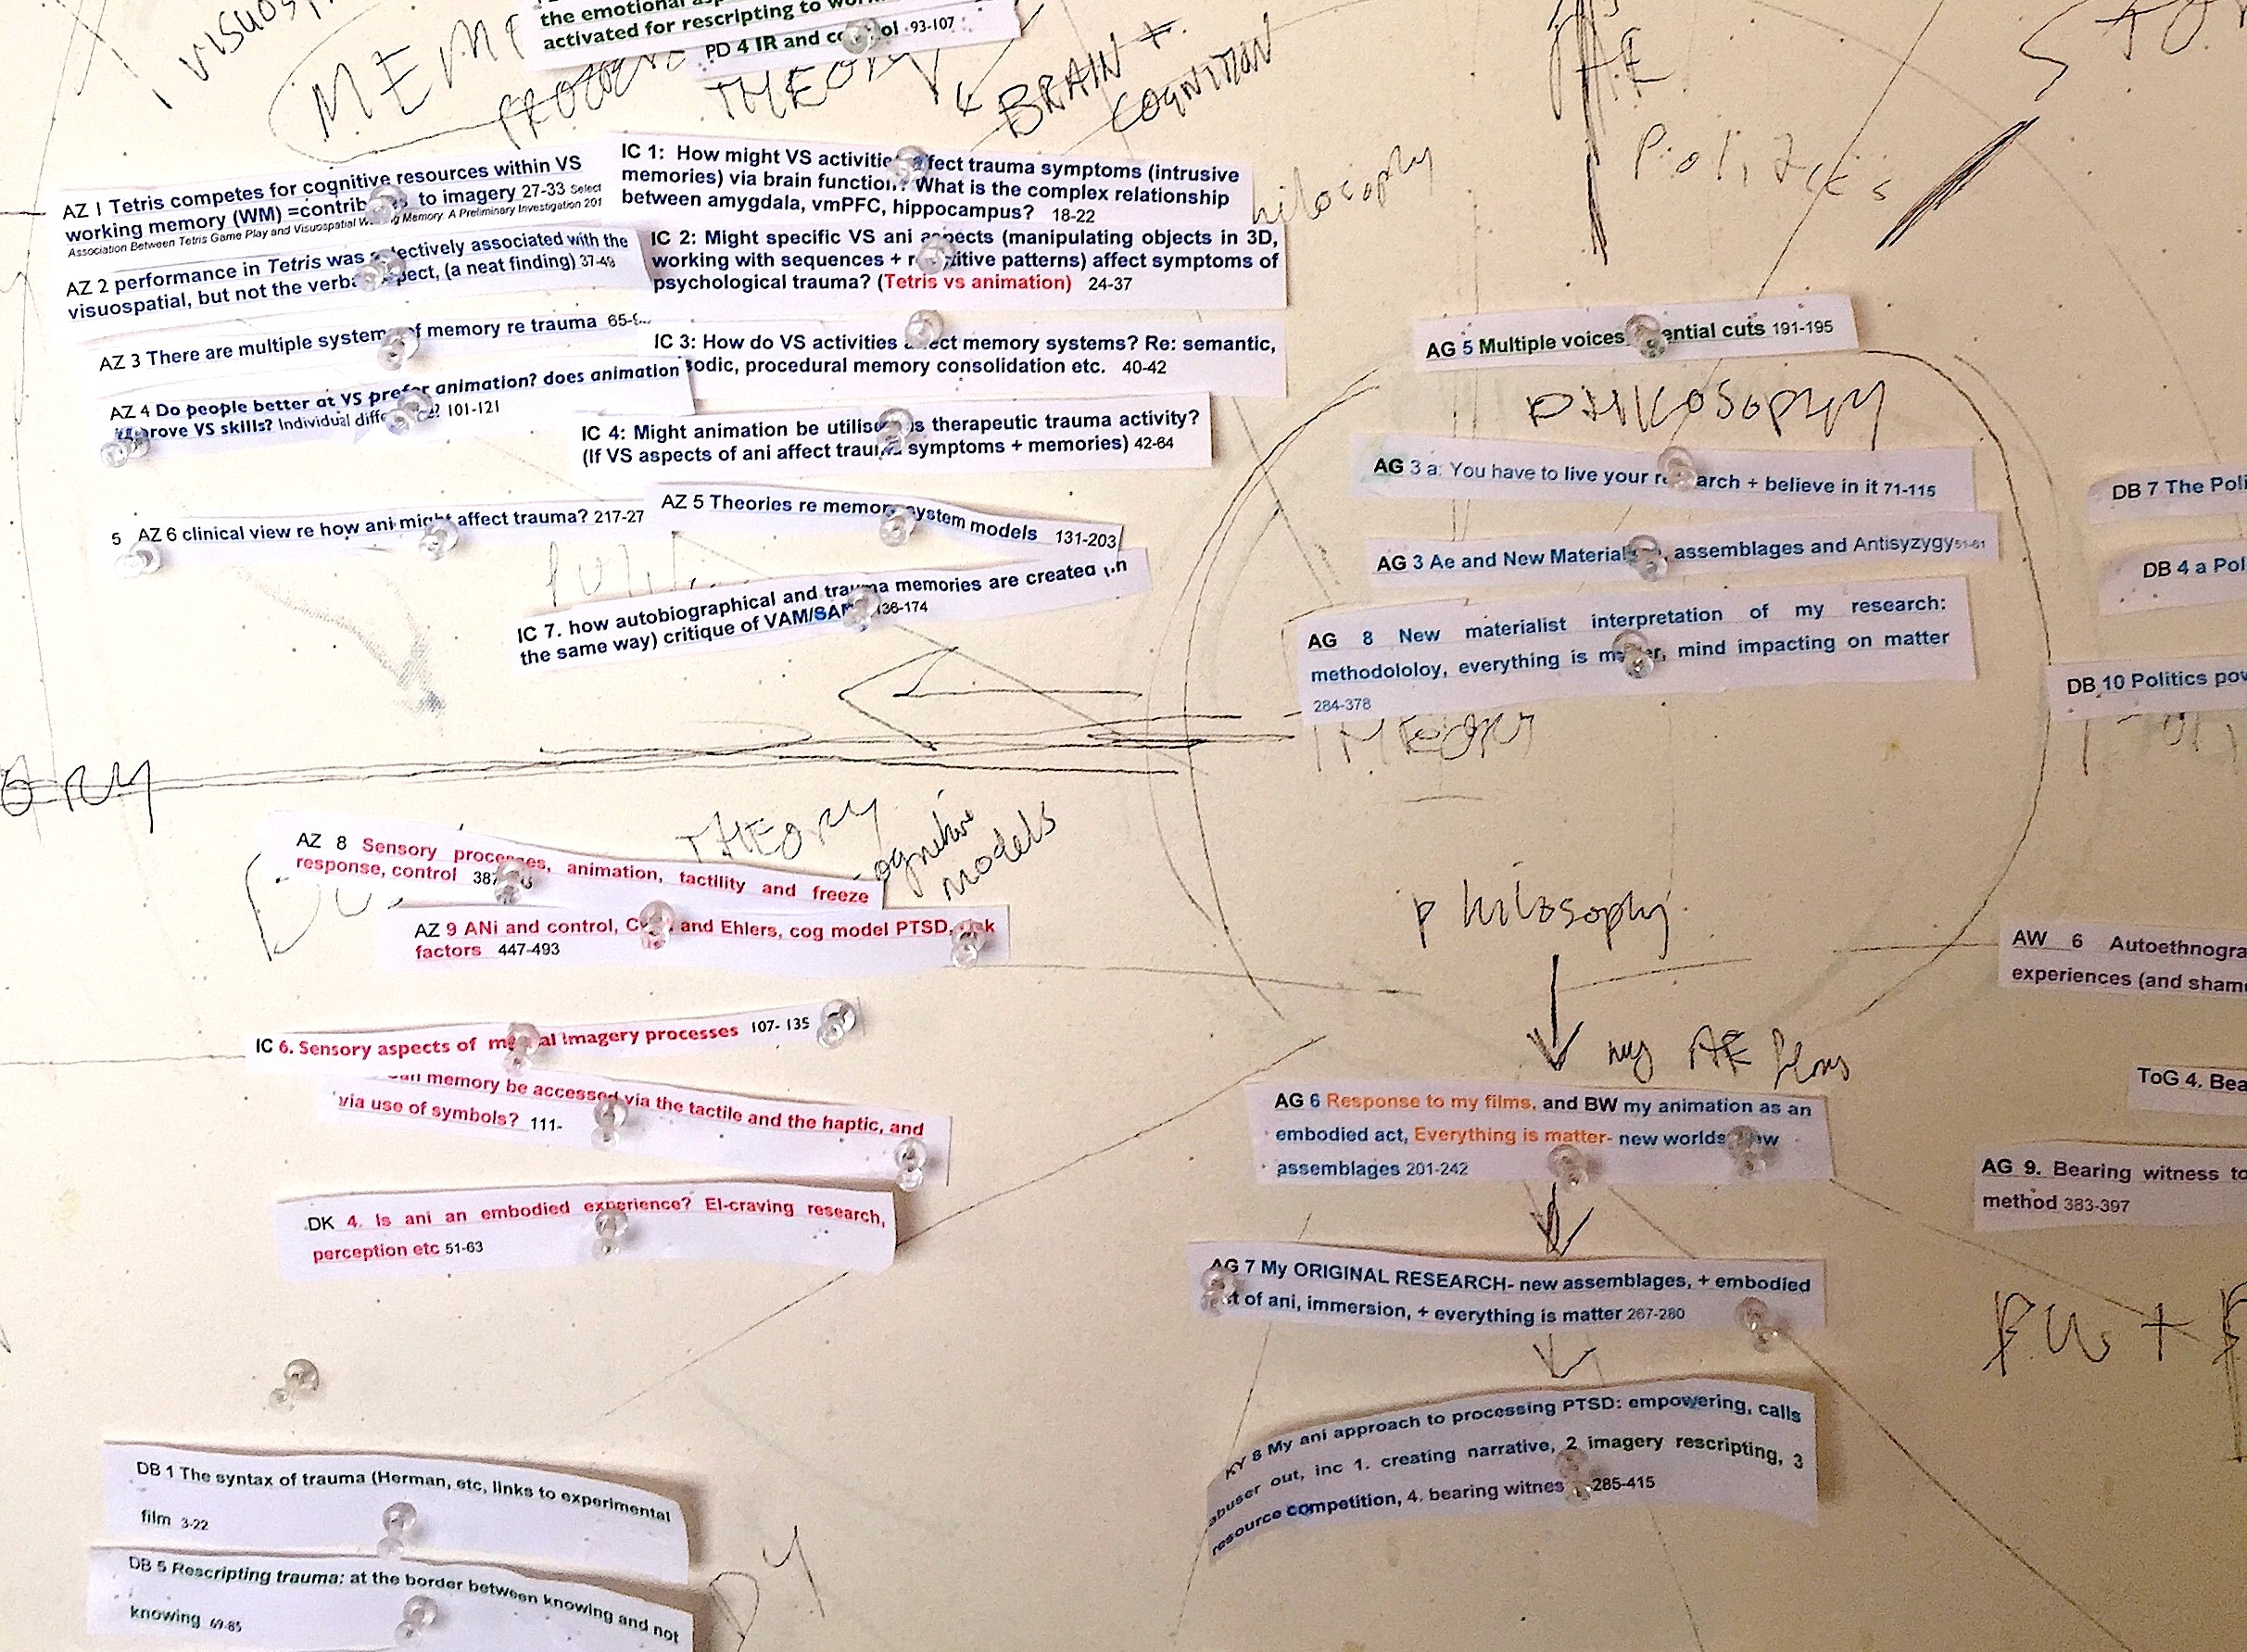 visuosp
the emotional
activated for rescripting to
PD 4 IR and 93-107
THEORY
BRAIN +
COGNITION
AE
Politics
AZ 1 Tetris competes for cognitive resources within VS
working memory (WM) to imagery 27-33 Select
Association Between Tetris Game Play and Visuospatial Memory. A Preliminary Investigation 201
AZ 2 performance in Tetris was associated with the
visuospatial, but not the (a neat finding)
AZ 3 There are multiple memory re trauma
AZ 4 Do people better at VS prefer animation? does animation
VS skills? Individual 101-121
5 AZ 6 clinical view re how ani might affect trauma? 217-27
IC 1: How might VS trauma symptoms (intrusive
memories) via brain What is the complex relationship
between amygdala, vmPFC, hippocampus? 18-22
IC 2: Might specific VS ani aspects (manipulating objects in 3D,
working with sequences + patterns) affect symptoms of
psychological trauma? (Tetris vs animation) 24-37
IC 3: How do VS activities memory systems? Re: semantic,
procedural memory consolidation etc. 40-42
IC 4: Might animation be therapeutic trauma activity?
(If VS aspects of ani affect symptoms + memories) 42-64
AZ 5 Theories re models 131-203
IC 7. how autobiographical and trauma memories are created
the same way) critique of 136-174
AG 5 Multiple voices cuts 191-195
PHILOSOPHY
AG 3 a: You have to live your + believe in it 71-115
AG 3 Ae and New assemblages and Antisyzygy
AG 8 New materialist interpretation of my research:
methodololoy, everything is mind impacting on matter
284-378
DB 7 The
DB 4 a
DB 10 Politics
THEORY
models
AZ 8 Sensory processes, animation, tactility and freeze
response, control
AZ 9 ANi and control, and Ehlers, cog model PTSD,
factors 447-493
IC 6. Sensory aspects of imagery processes 107- 135
memory be accessed via the tactile and the haptic, and
via use of symbols? 111-
DK 4. Is ani an embodied experience? El-craving research,
perception etc 51-63
philosophy
my AE films
AG 6 Response to my films, and BW my animation as an
embodied act, Everything is matter- new worlds
assemblages 201-242
AG 7 My ORIGINAL RESEARCH- new assemblages, + embodied
of ani, immersion, + everything is matter 267-280
KY 8 My ani approach to processing PTSD: empowering, calls
abuser out, inc 1. creating narrative, 2 imagery rescripting, 3
resource competition, 4. bearing 285-415
AW 6
experiences (and
ToG 4.
AG 9. Bearing witness to
method 383-397
DB 1 The syntax of trauma (Herman, etc, links to experimental
film 3-22
DB 5 Rescripting trauma: at the border between knowing and not
knowing 69-85